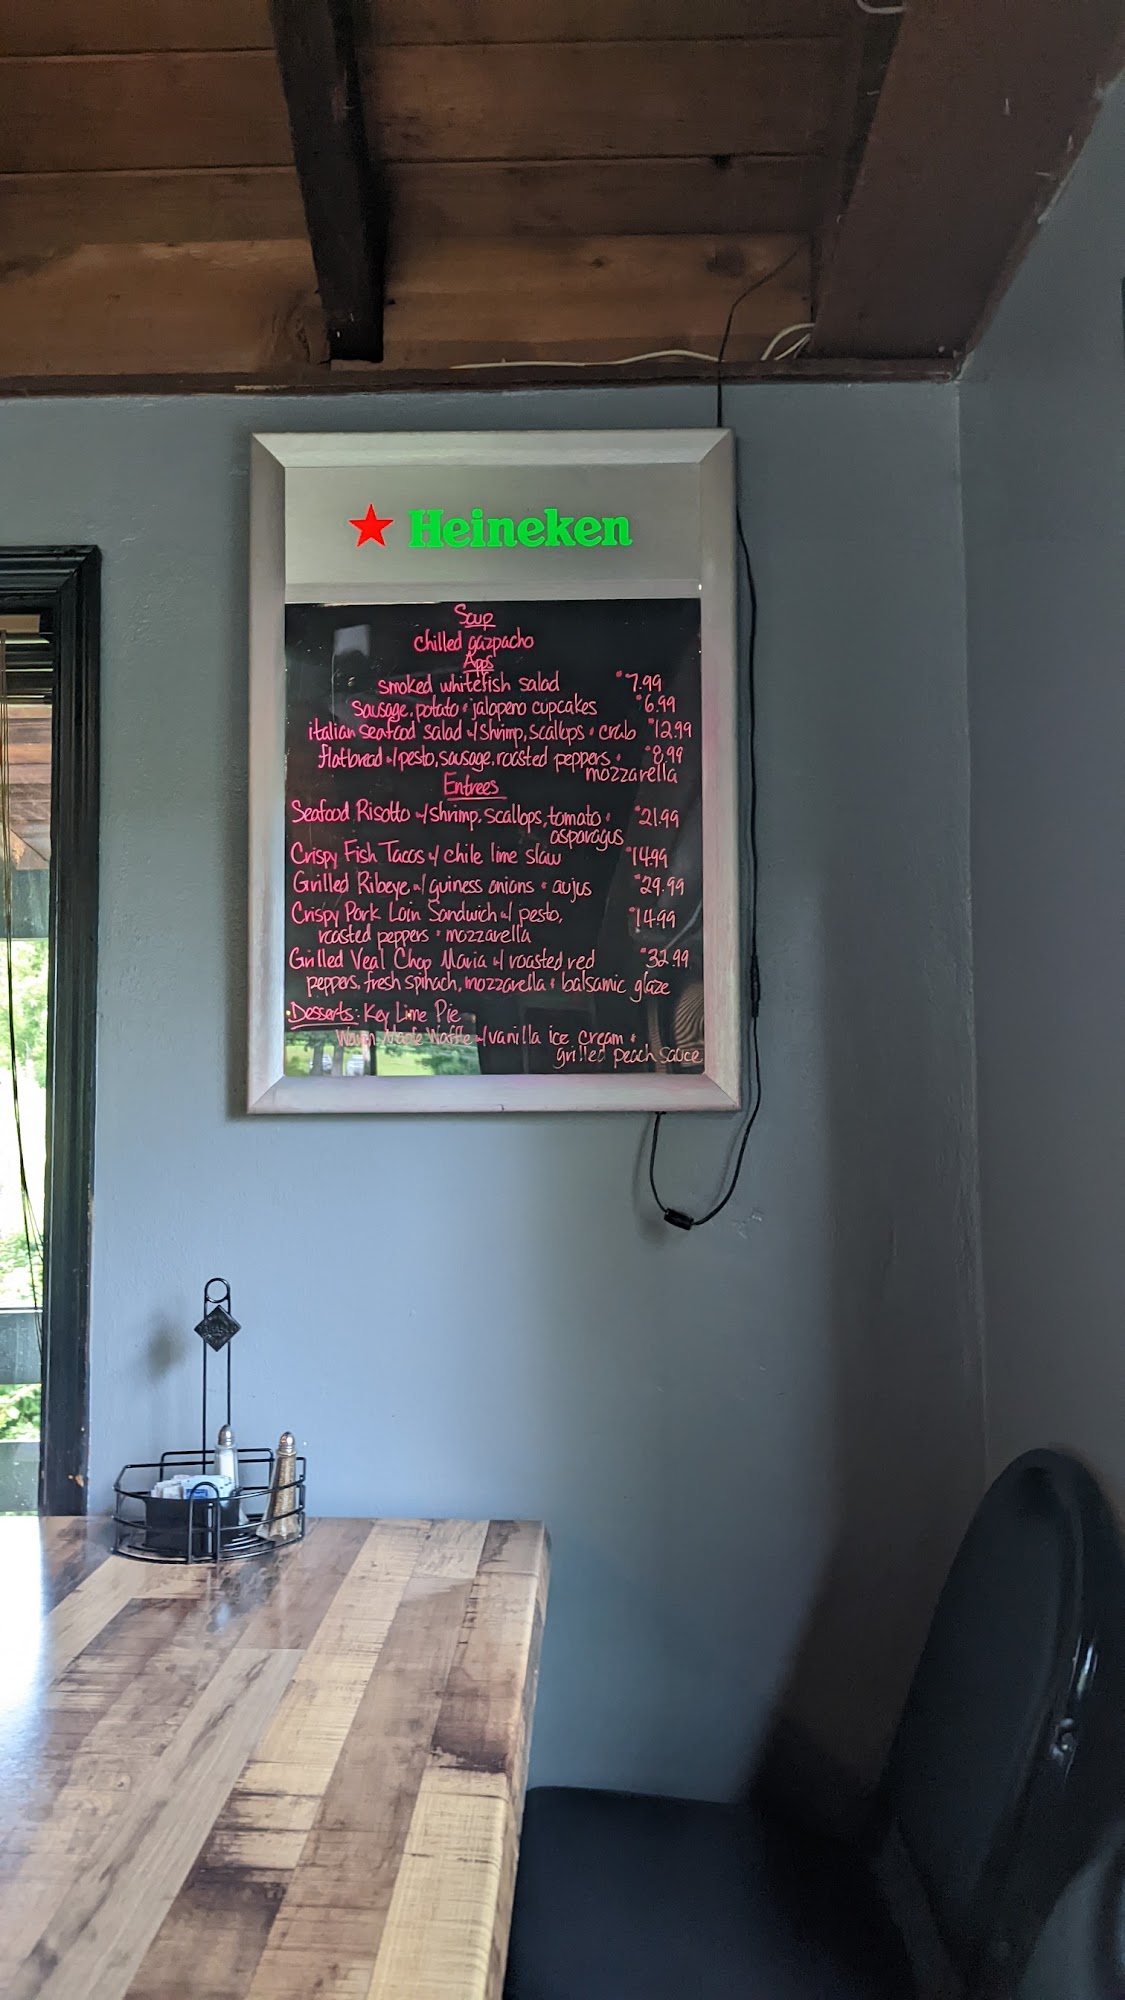 Heineken
Soup
chilled gazpacho
Apps
smoked whitefish salad $7.99
sausage, potato & jalapeno cupcakes $6.99
italian seafood salad w/ shrimp, scallops & crab $12.99
flatbread w/ pesto, sausage, roasted peppers & $8.99
mozzarella
Entrees
Seafood Risotto w/ shrimp, scallops, tomato & $21.99
asparagus
Crispy Fish Tacos w/ chile lime slaw $14.99
Grilled Ribeye w/ guiness onions & aujus $29.99
Crispy Pork Loin Sandwich w/ pesto, $14.99
roasted peppers & mozzarella
Grilled Veal Chop Maria w/ roasted red $32.99
peppers, fresh spinach, mozzarella & balsamic glaze
Desserts: Key Lime Pie
Warm Waffle w/ vanilla ice cream &
grilled peach sauce